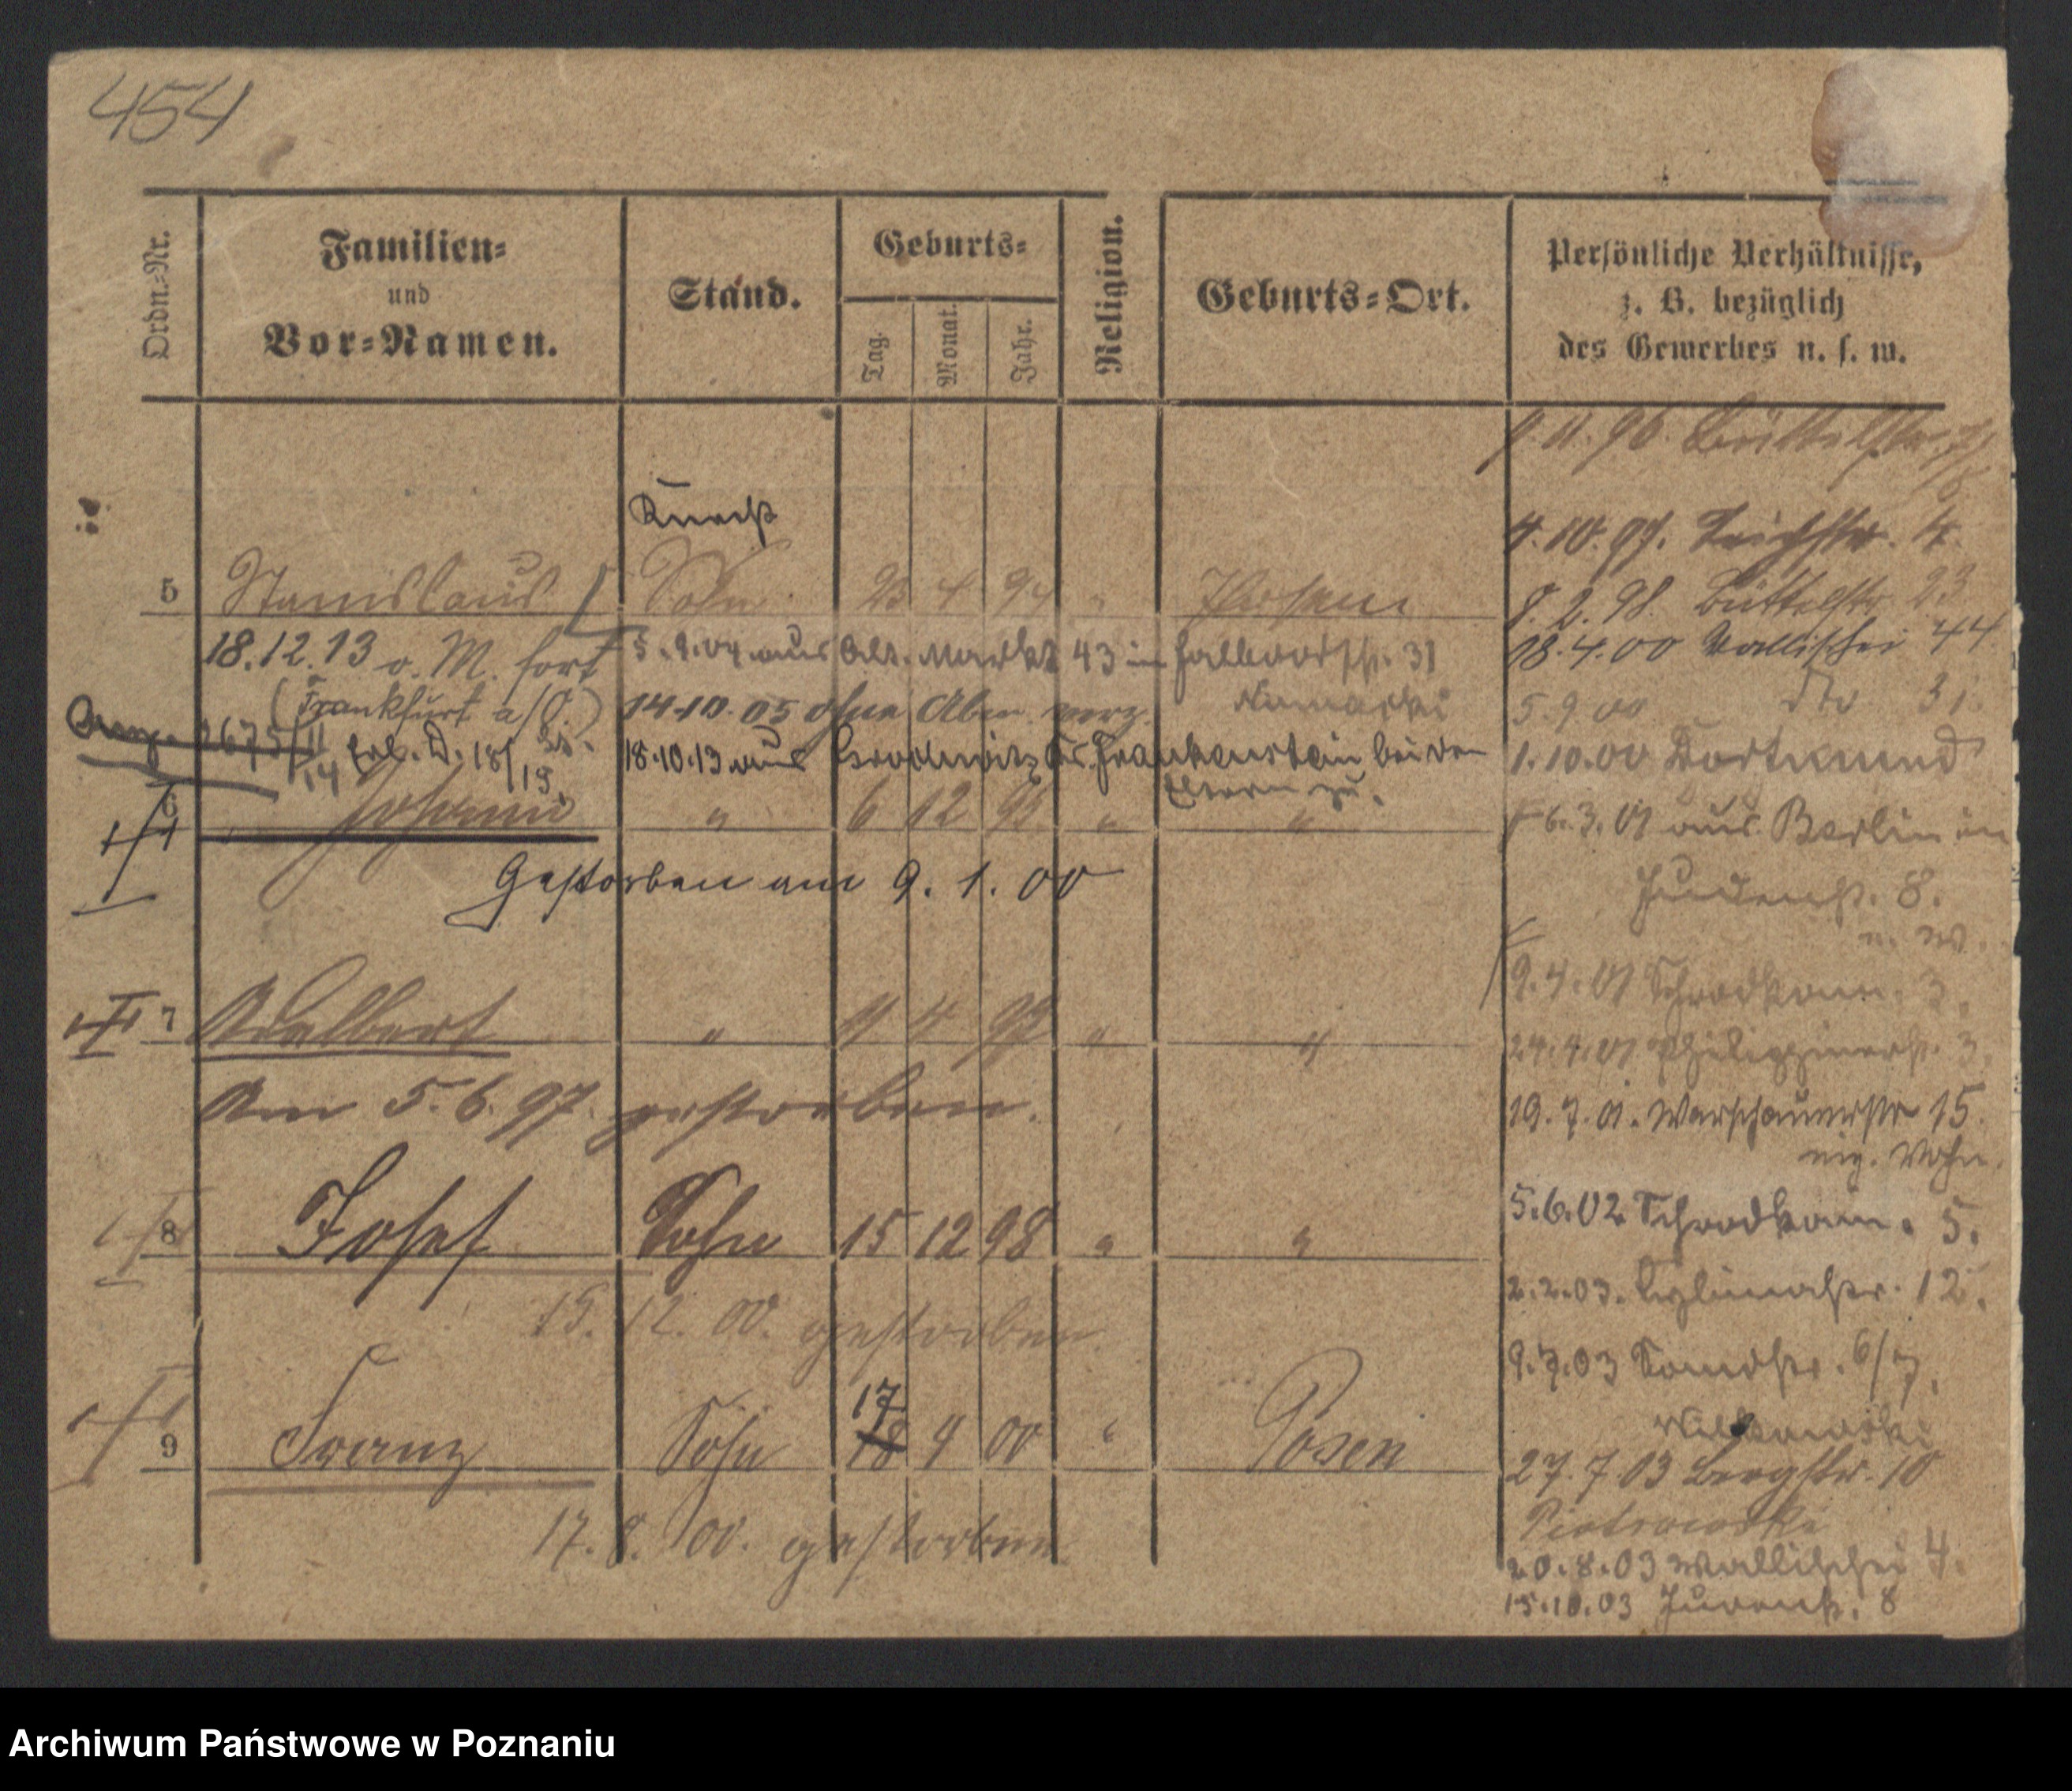 454
Ordn.-Nr.
Familien-
und
Vor-Namen.
Stand.
Geburts-
Tag.
Monat.
Jahr.
Religion.
Geburts-Ort.
Persönliche Verhältnisse,
z. B. bezüglich
des Gewerbes u. s. w.
Knecht
5 Stanislaus Sohn 23 4 94 " Posen
18.12.13 o. M. fort
(Frankfurt a/O.)
5.9.04 aus Alt. Markt 43 in Halldorfstr. 31
14.10.05 ohne Abm. verz.
18.10.13 aus Frankenstein bei den
Eltern zu.
2675/II 14
6 Johann " 6 12 95 " "
Gestorben am 9. 1. 00
7 Adalbert " 9 4 97 " "
Am 5. 6. 97. gestorben.
8 Josef Sohn 15 12 98 " "
15. 12. 00. gestorben
17
9 Franz Sohn 18 4 00 " Posen
17. 8. 00. gestorben
9.11.96. Büttelstr.
4.10.97. Teichstr. 4.
8.2.98. Büttelstr. 23
18.4.00 Wallischei 44
5.9.00 dto 31.
1.10.00 Dortmund
6.3.01 aus Berlin in
Judenstr. 8.
n. W.
9.4.01 Schrodkam. 3.
24.4.01 Philippinerstr. 3.
19.7.01. Warschauerstr 15.
eig. Wohn.
5.6.02 Schrodkam. 5.
2.2.03. 12.
9.7.03 6/7.
27.7.03 Bergstr. 10
Piotrowski
20.8.03 Wallischei 4.
15.10.03 Judenstr. 8
Archiwum Państwowe w Poznaniu